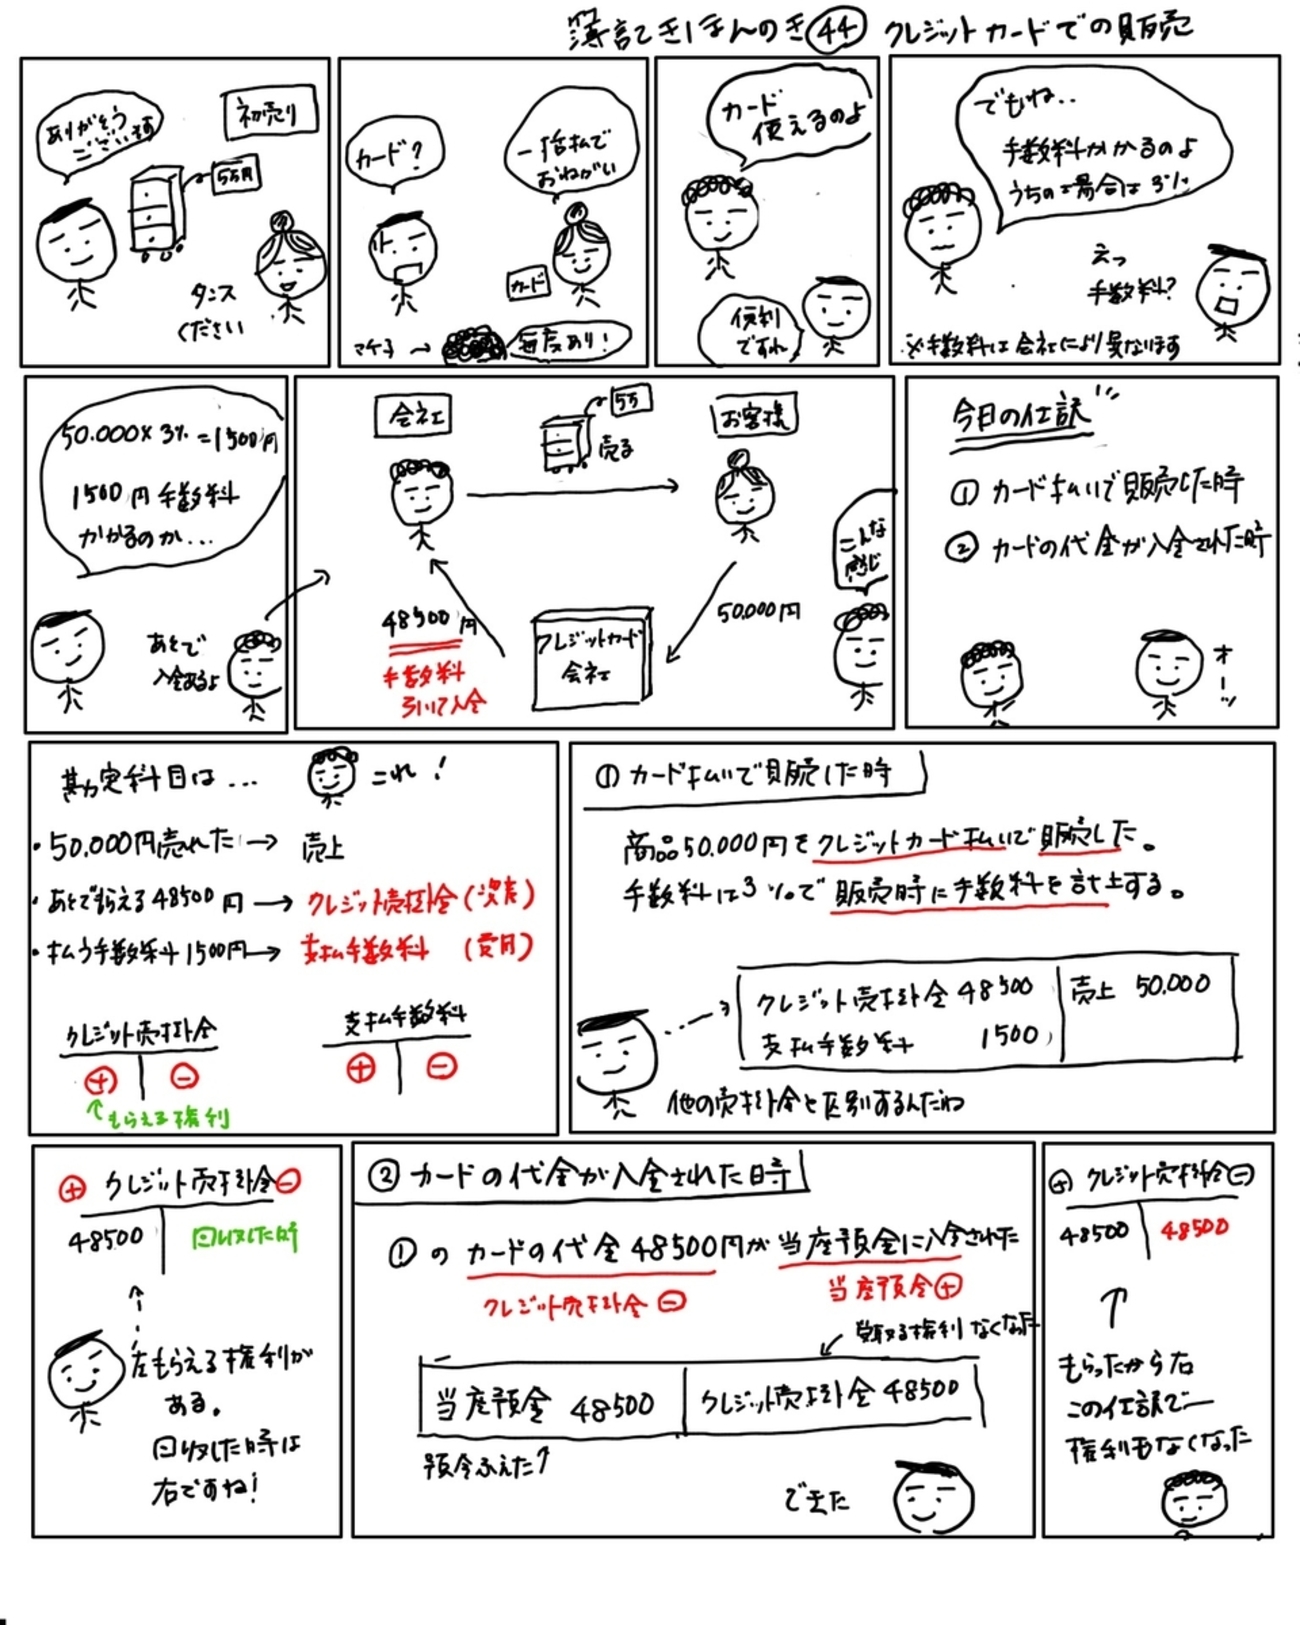 簿記きほんのき㊹ クレジットカードでの販売
ありがとう
ございます
初売り
5万円
タンス
ください
カード?
一括払で
おねがい
カード
マチ子→
毎度あり!
カード
使えるのよ
便利
ですね
でもね..
手数料かかるのよ
うちの場合は3%
えっ
手数料?
※手数料は会社により異なります
50.000×3%=1500円
1500円手数料
かかるのか...
あとで
入金あるよ
会社
5万
売る
お客様
こんな
感じ
48500円
手数料
引いて入金
クレジットカード
会社
50.000円
今日の仕訳
① カード払いで販売した時
② カードの代金が入金された時
オーッ
勘定科目は...
これ!
・50.000円売れた!→ 売上
・あとでもらえる48500円→ クレジット売掛金(資産)
・払う手数料1500円→ 支払手数料 (費用)
クレジット売掛金
⊕ ⊖
↑もらえる権利
支払手数料
⊕ ⊖
① カード払いで販売した時
商品50.000円をクレジットカード払いで販売した。
手数料は3%で販売時に手数料を計上する。
クレジット売掛金 48500 売上 50.000
支払手数料 1500
他の売掛金と区別するんだね
⊕ クレジット売掛金 ⊖
48500 回収した時
左もらえる権利が
ある。
回収した時は
右ですね!
② カードの代金が入金された時
①のカードの代金48500円が当座預金に入金された
クレジット売掛金 ⊖
当座預金⊕
受取る権利なくなった
当座預金 48500 クレジット売掛金 48500
預金ふえた↑
できた
⊕ クレジット売掛金 ⊖
48500 48500
↑
もらったから右
この仕訳で
権利もなくなった